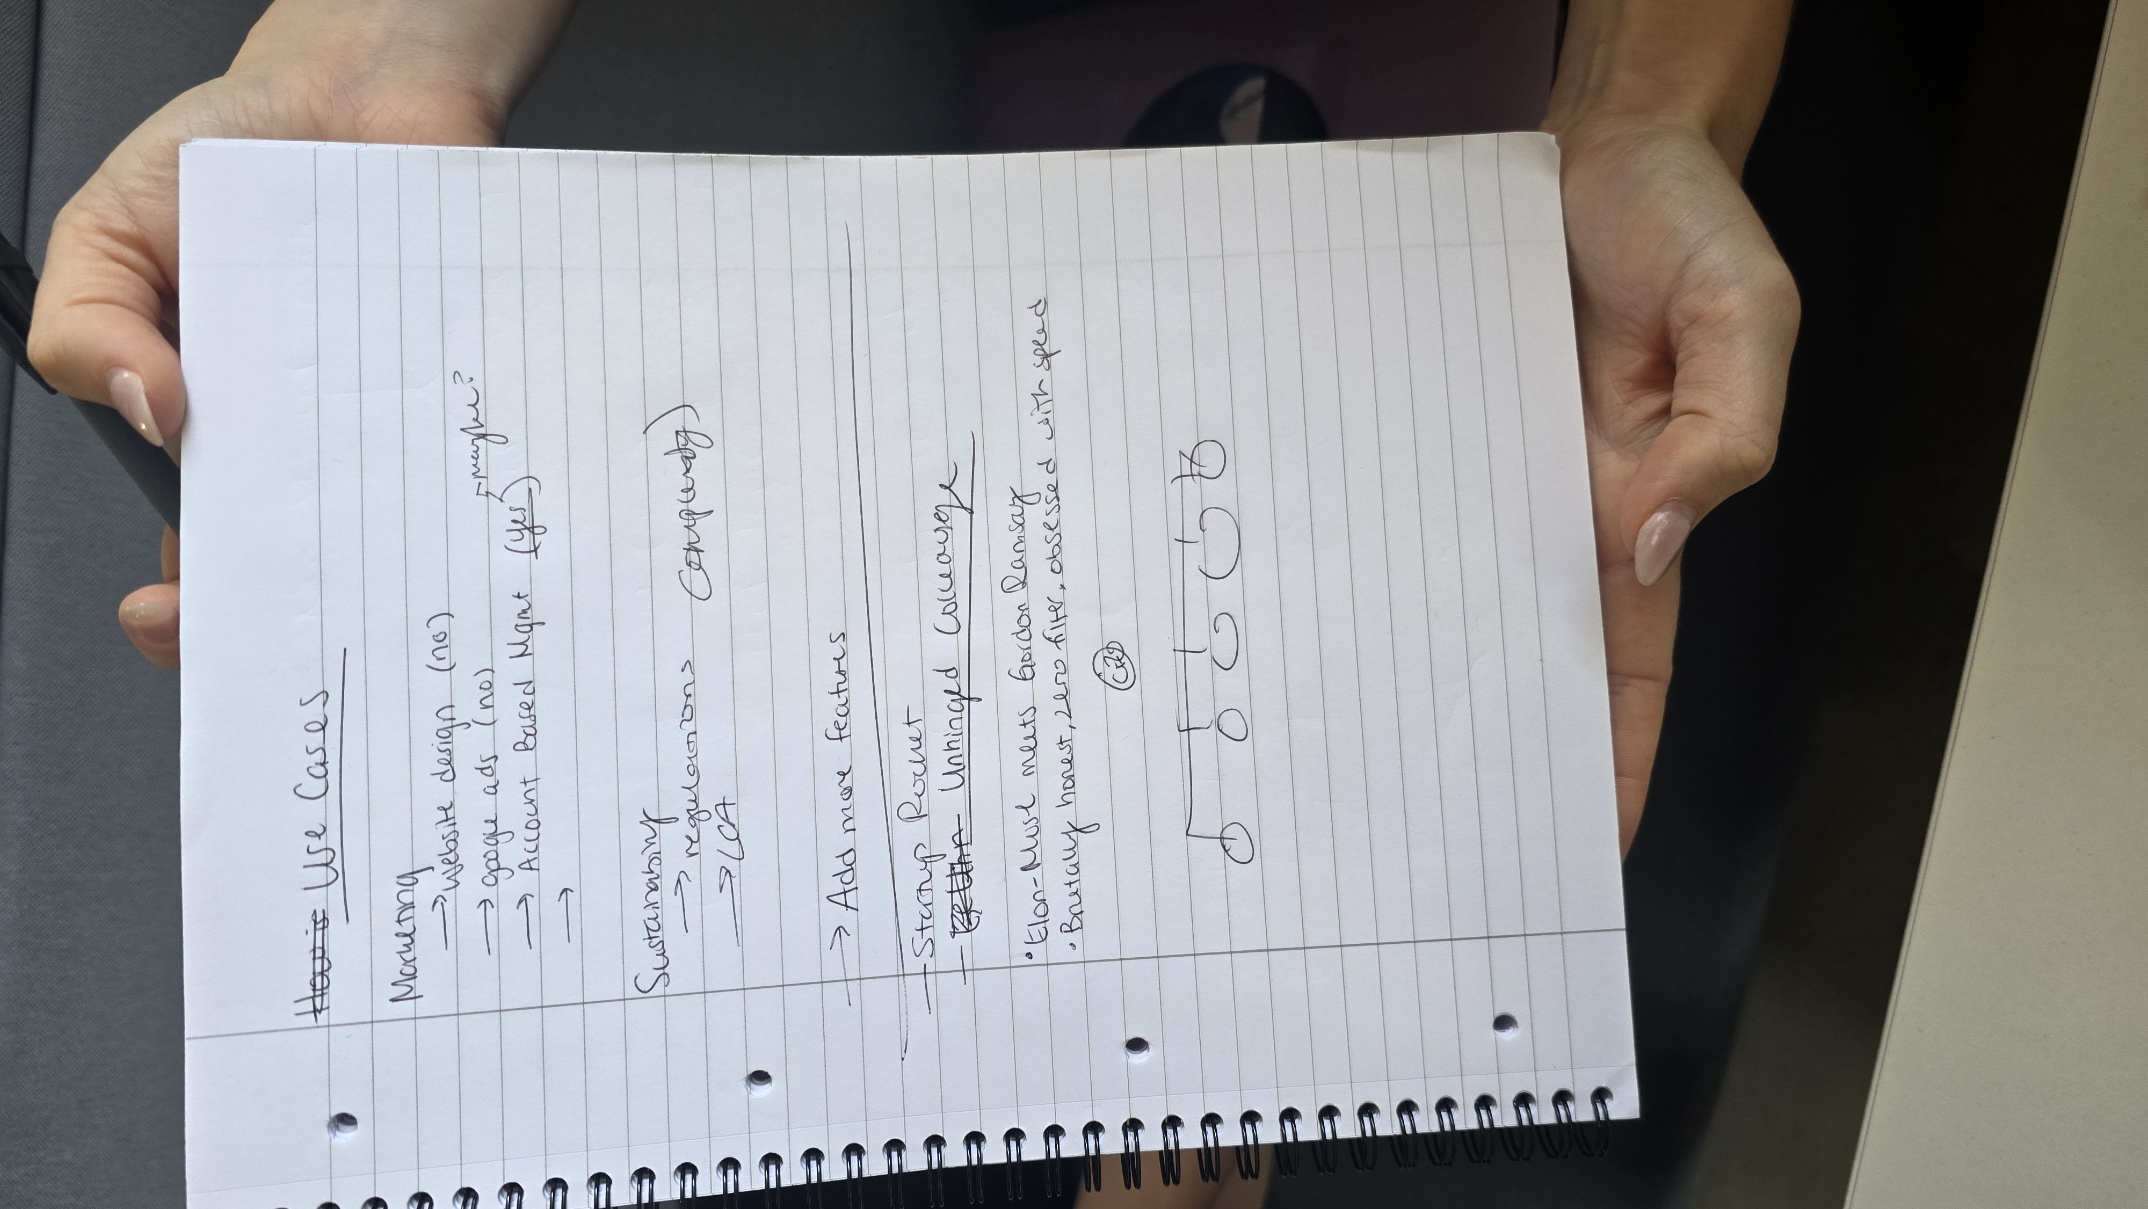 How is Use Cases
Marketing
→ website design (no)
→ google ads (no)
→ maybe?
→ Account Based Mgmt (yes)
→
Sustainability
→ regulations
→ LCA
→ Add more features
- Startup Rocket
- Unhinged Colleauge
• Elon-Musk meets Gordon Ramsay
• Brutally honest, zero filter, obsessed with speed